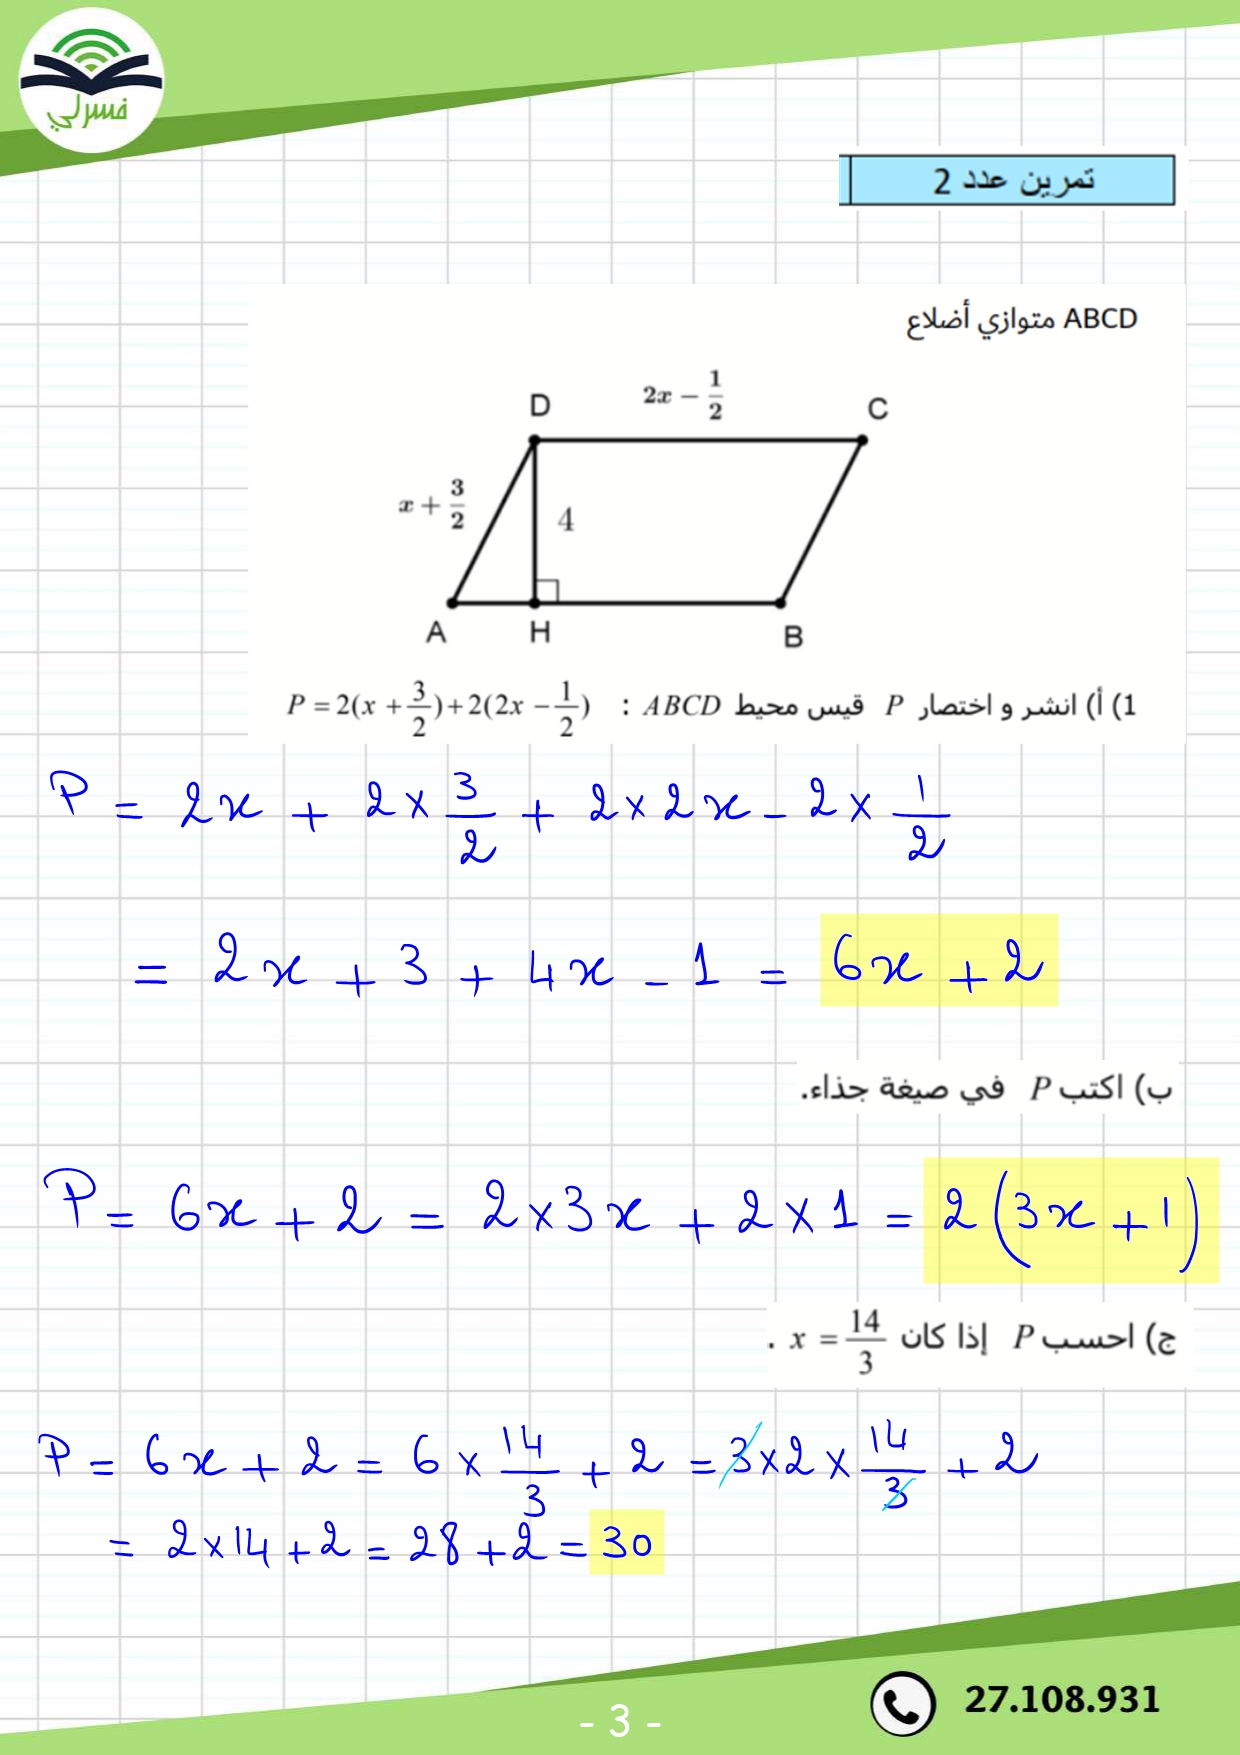 فسرلي
تمرين عدد 2
ABCD متوازي أضلاع
2x - 1/2
D
C
x + 3/2
4
A
H
B
1) أ) انشر و اختصار P قيس محيط ABCD : P = 2(x + 3/2) + 2(2x - 1/2)
P = 2x + 2 × 3/2 + 2 × 2x - 2 × 1/2
= 2x + 3 + 4x - 1 = 6x + 2
ب) اكتب P في صيغة جذاء.
P = 6x + 2 = 2×3x + 2×1 = 2(3x + 1)
ج) احسب P إذا كان x = 14/3 .
P = 6x + 2 = 6 × 14/3 + 2 = 3×2× 14/3 + 2
= 2×14 + 2 = 28 + 2 = 30
27.108.931
- 3 -